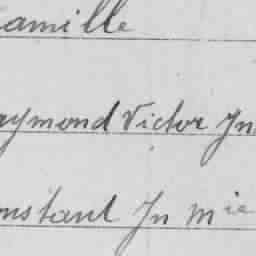 amille
aymond Victor Jn
onstant Jn Mie